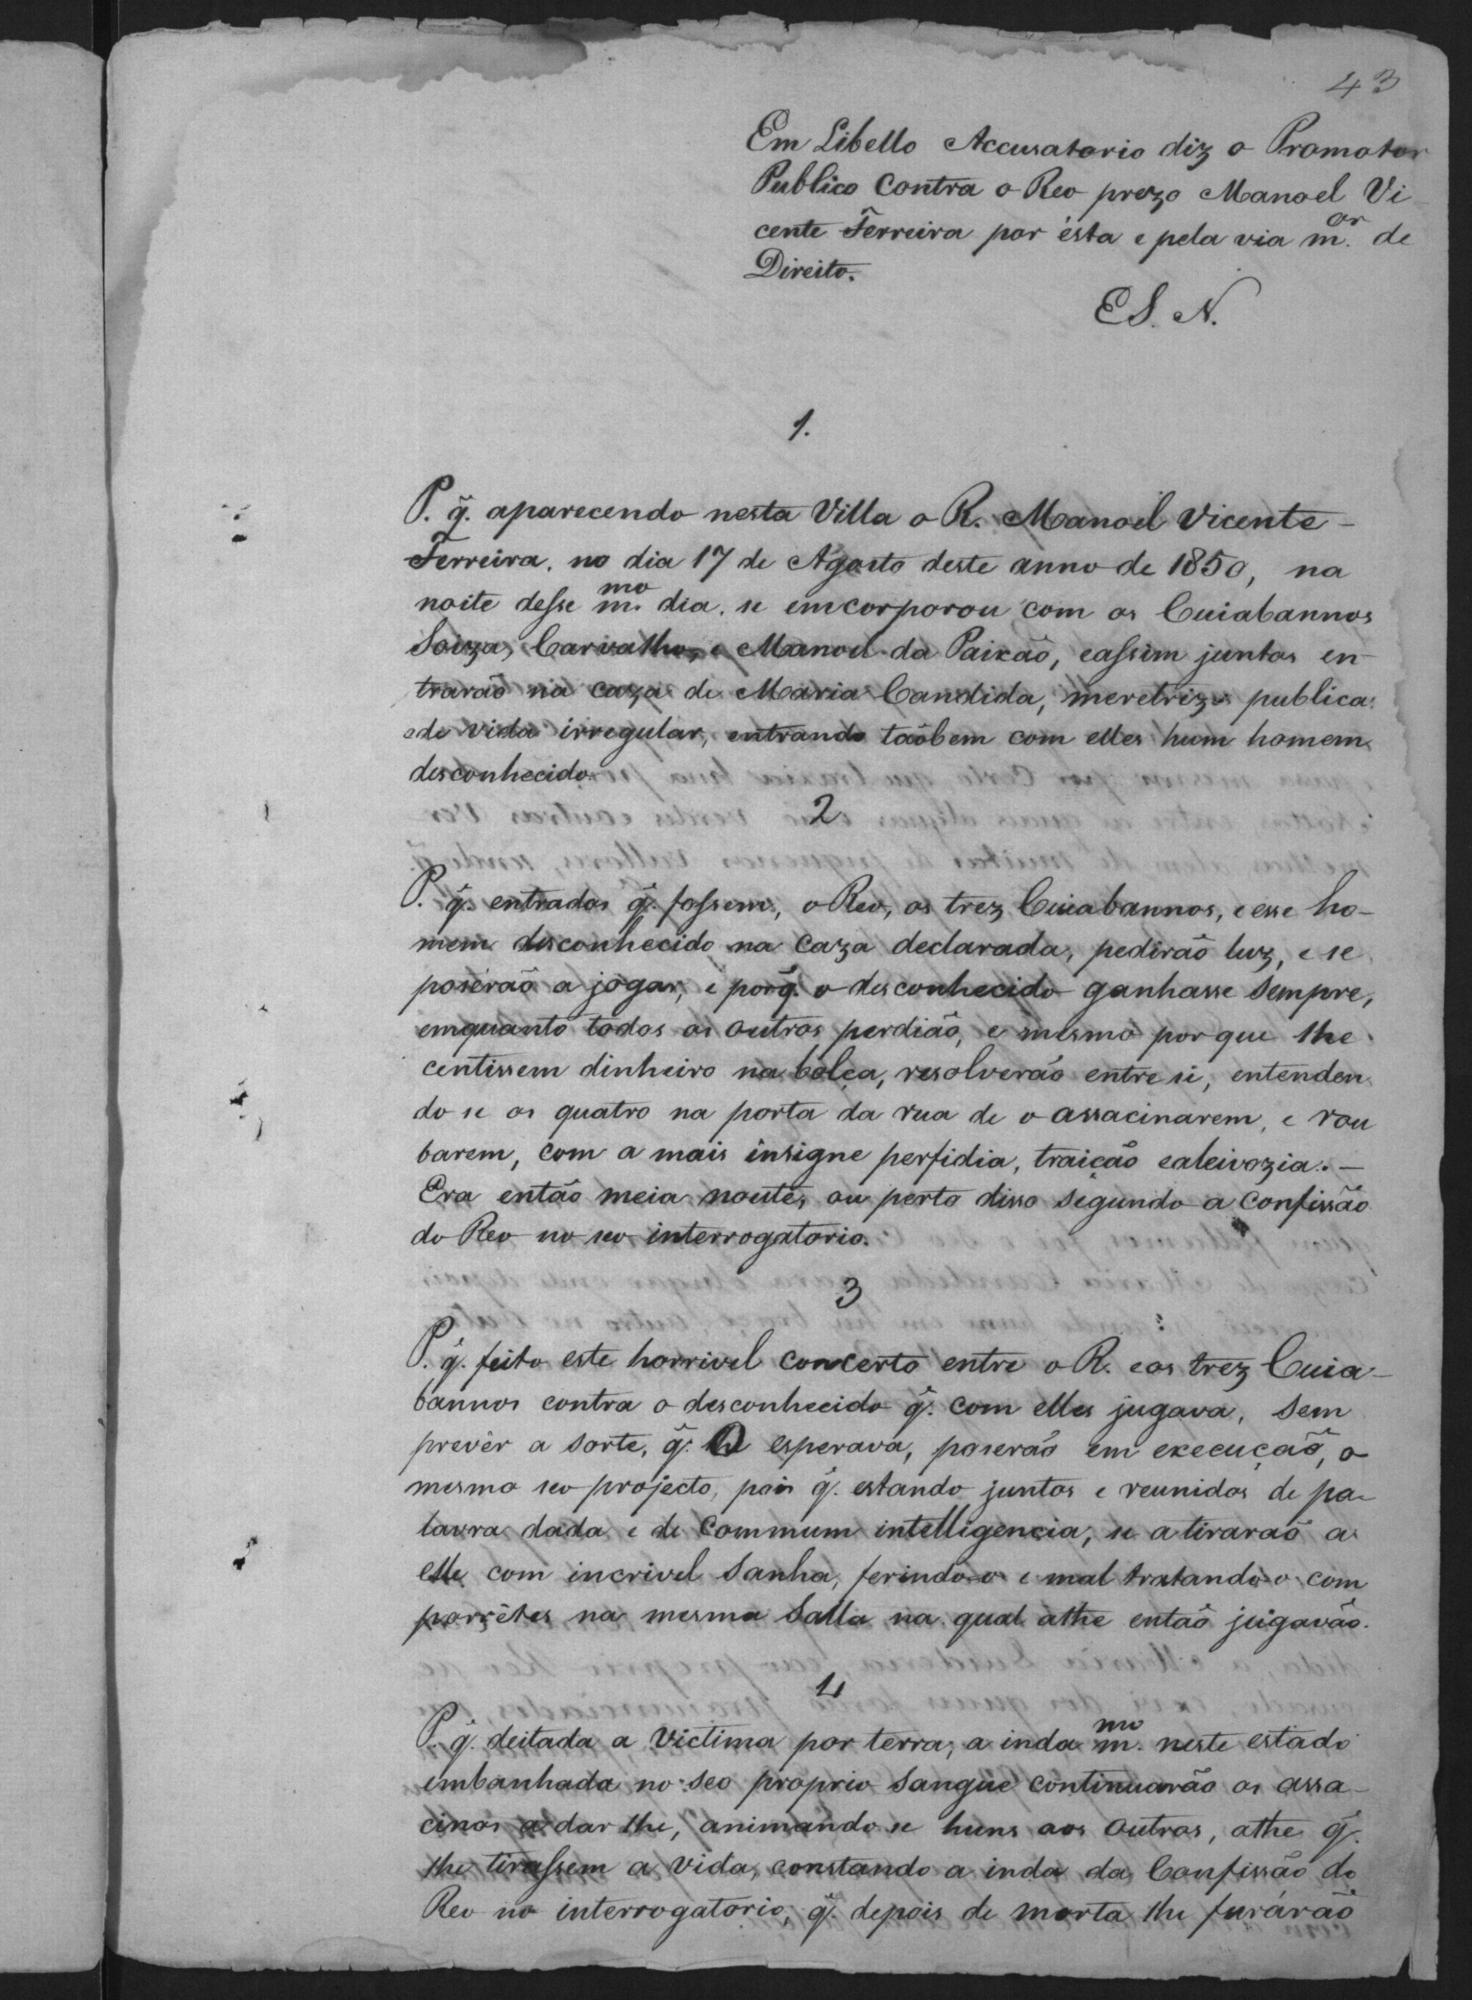 43
Em Libello Accusatorio diz o Promotor
Publico Contra o Reo prezo Manoel Vi
cente Ferreira por ésta e pela via m.or de
Direito.
E S. N.
1.
P. q̃. aparecendo nesta Villa o R. Manoel Vicente -
Ferreira, no dia 17 de Agosto deste anno de 1850, na
noite desse m.mo dia, se emcorporou com os Cuiabannos
Soiza, Carvalho, e Manoel da Paixão, eassim juntos en-
trarão na caza de Maria Candida, meretriz publica
ede vida irregular, entrando taõbem com elles hum homem
desconhecido.
2
P. q̃. entrados q̃. fossem, o Reo, os trez Cuiabannos, e esse ho-
mem desconhecido na caza declarada, pedirão luz, e se
poserão a jogar, e porq̃. o desconhecido ganhasse sempre,
emquanto todos os outros perdião, e mesmo por que lhe
centissem dinheiro na bolça, resolverão entre si, entenden
do se os quatro na porta da rua de o assacinarem, e rou
barem, com a mais insigne perfidia, traição ealeivozia. -
Era então meia noute, ou perto disso segundo a confissão
do Reo no seo interrogatorio.
3
P. q̃. feito este horrivel concerto entre o R. eos trez Cuia-
bannos contra o desconhecido q̃. com elles jugava, sem
prevêr a sorte, q̃. o esperava, poserão em execução, o
mesmo seo projecto, pois q̃. estando juntos e reunidos de pa-
lavra dada e de commum intelligencia, se atirarão a
elle com incrivel sanha, ferindo-o e mal tratando-o com
porrêtes na mesma Salla na qual athe então jugavão.
4
P. q̃. deitada a Victima por terra, a inda m.mo neste estado
embanhada no seo proprio sangue continuarão os assa-
cinos a dar lhe, animando se huns aos outros, athe q̃.
lhe tirassem a vida, constando a inda da Confissão do
Reo no interrogatorio, q̃. depois de morta lhe furárão